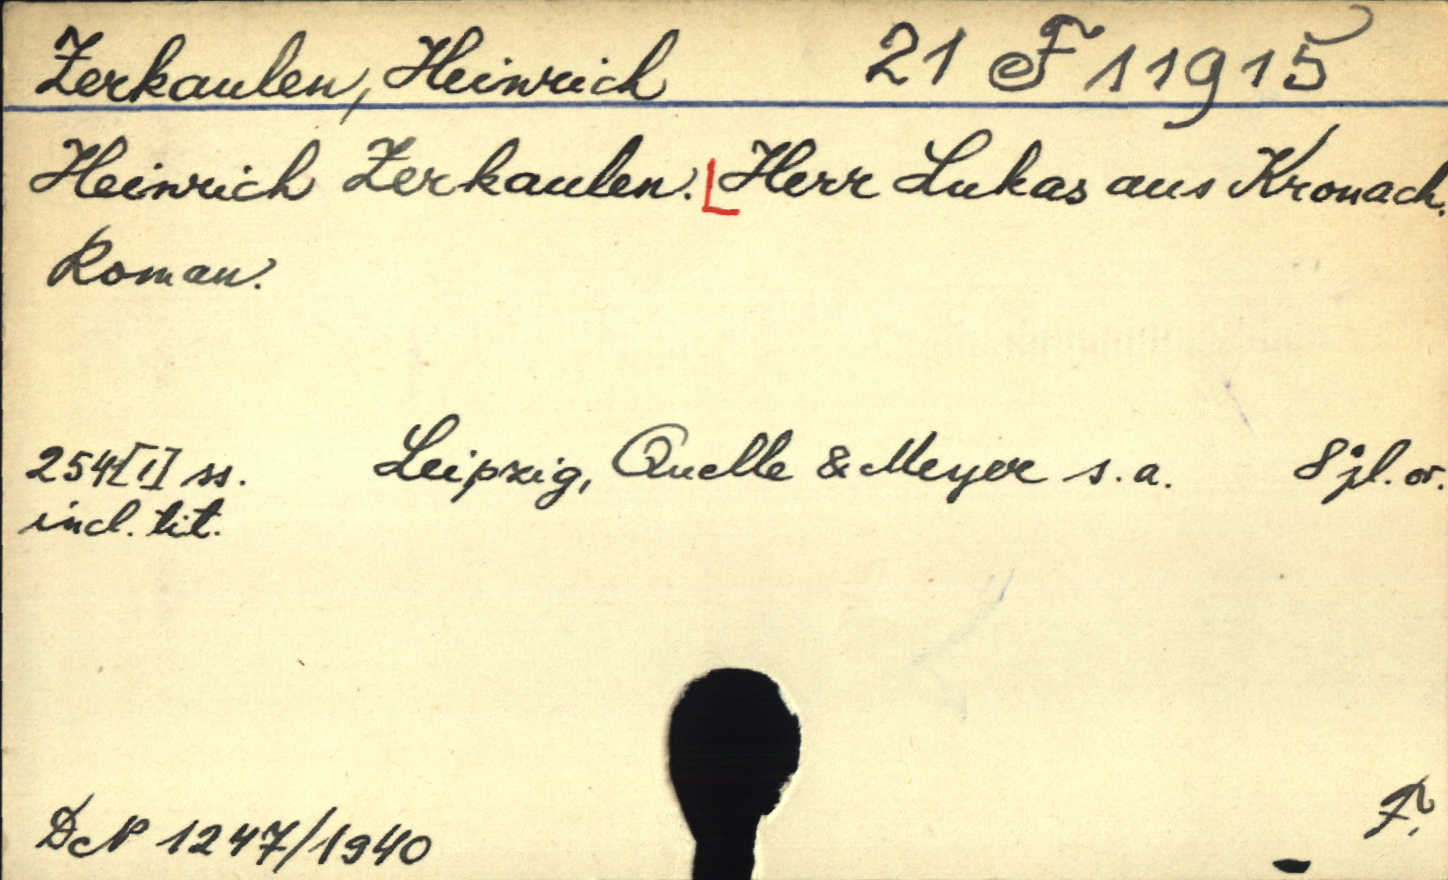 Zerkaulen, Heinrich 21 F 11915
Heinrich Zerkaulen. [Herr Lukas aus Kronach.
Roman.
254[1] ss. Leipzig, Quelle & Meyer s.a. 8° pl. or.
incl. tit.
DcP 1247/1940
F.